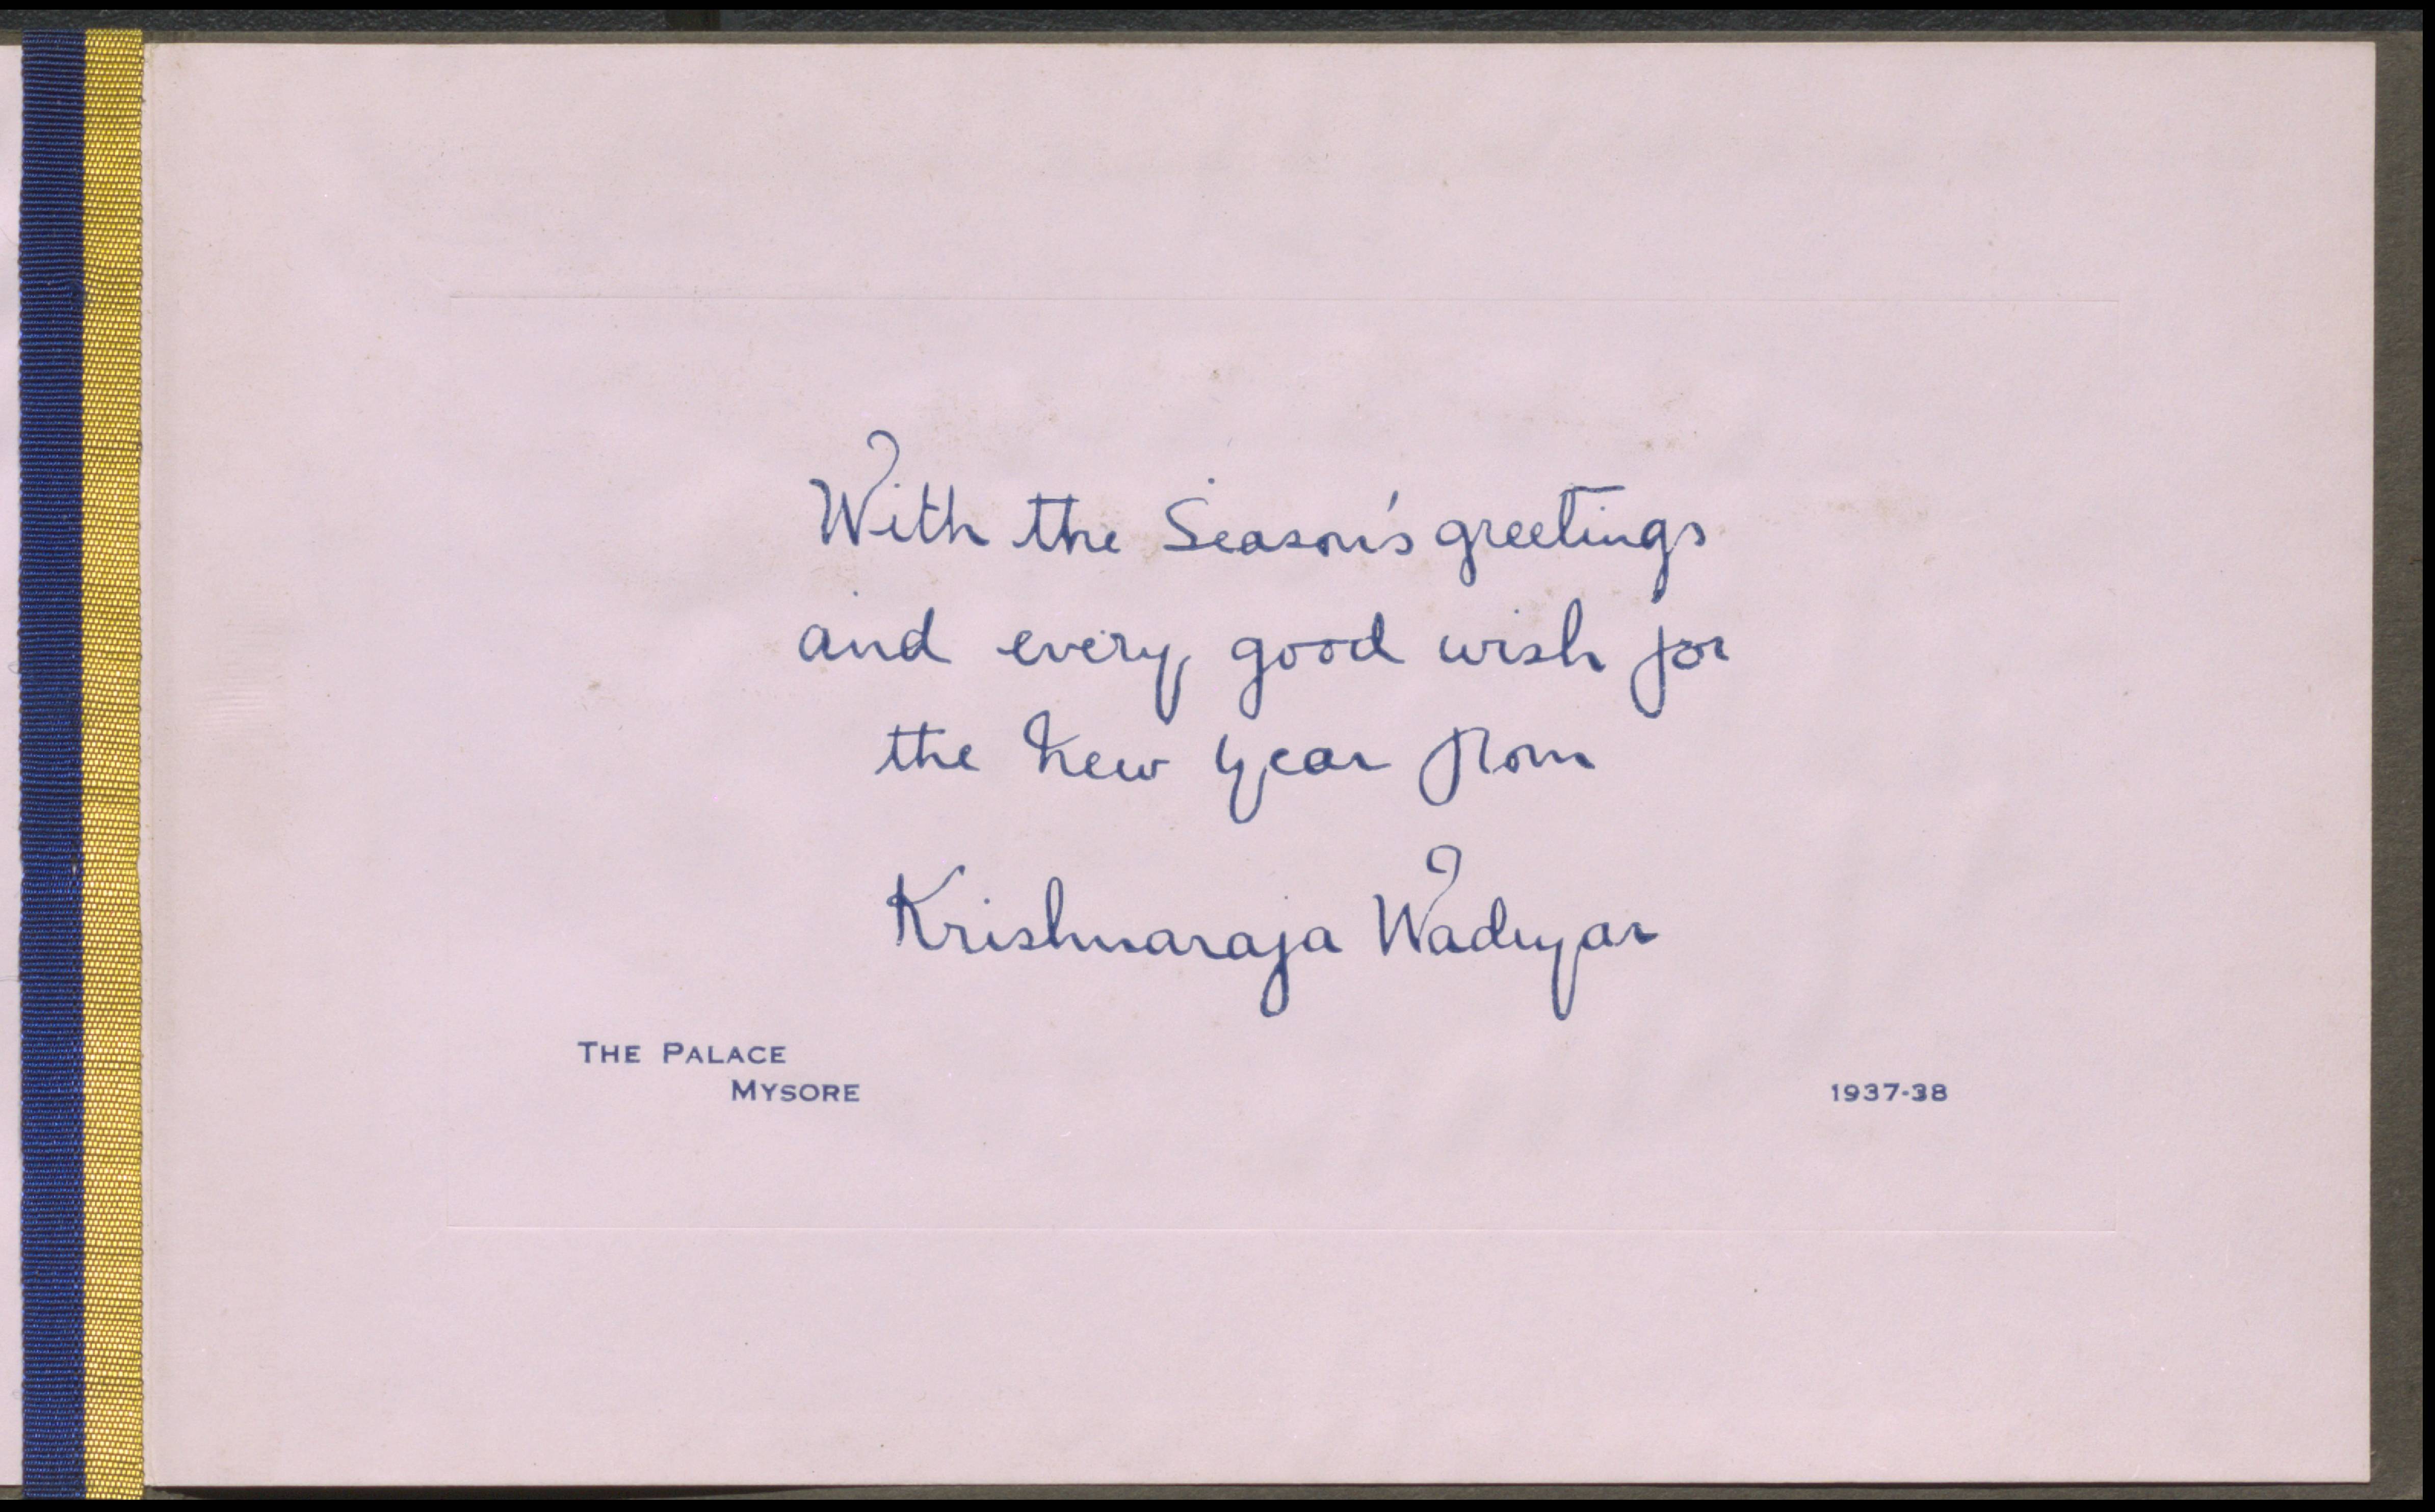 With the Season's greetings
and every good wish for
the New Year from
Krishnaraja Wadiyar
THE PALACE
MYSORE
1937-38